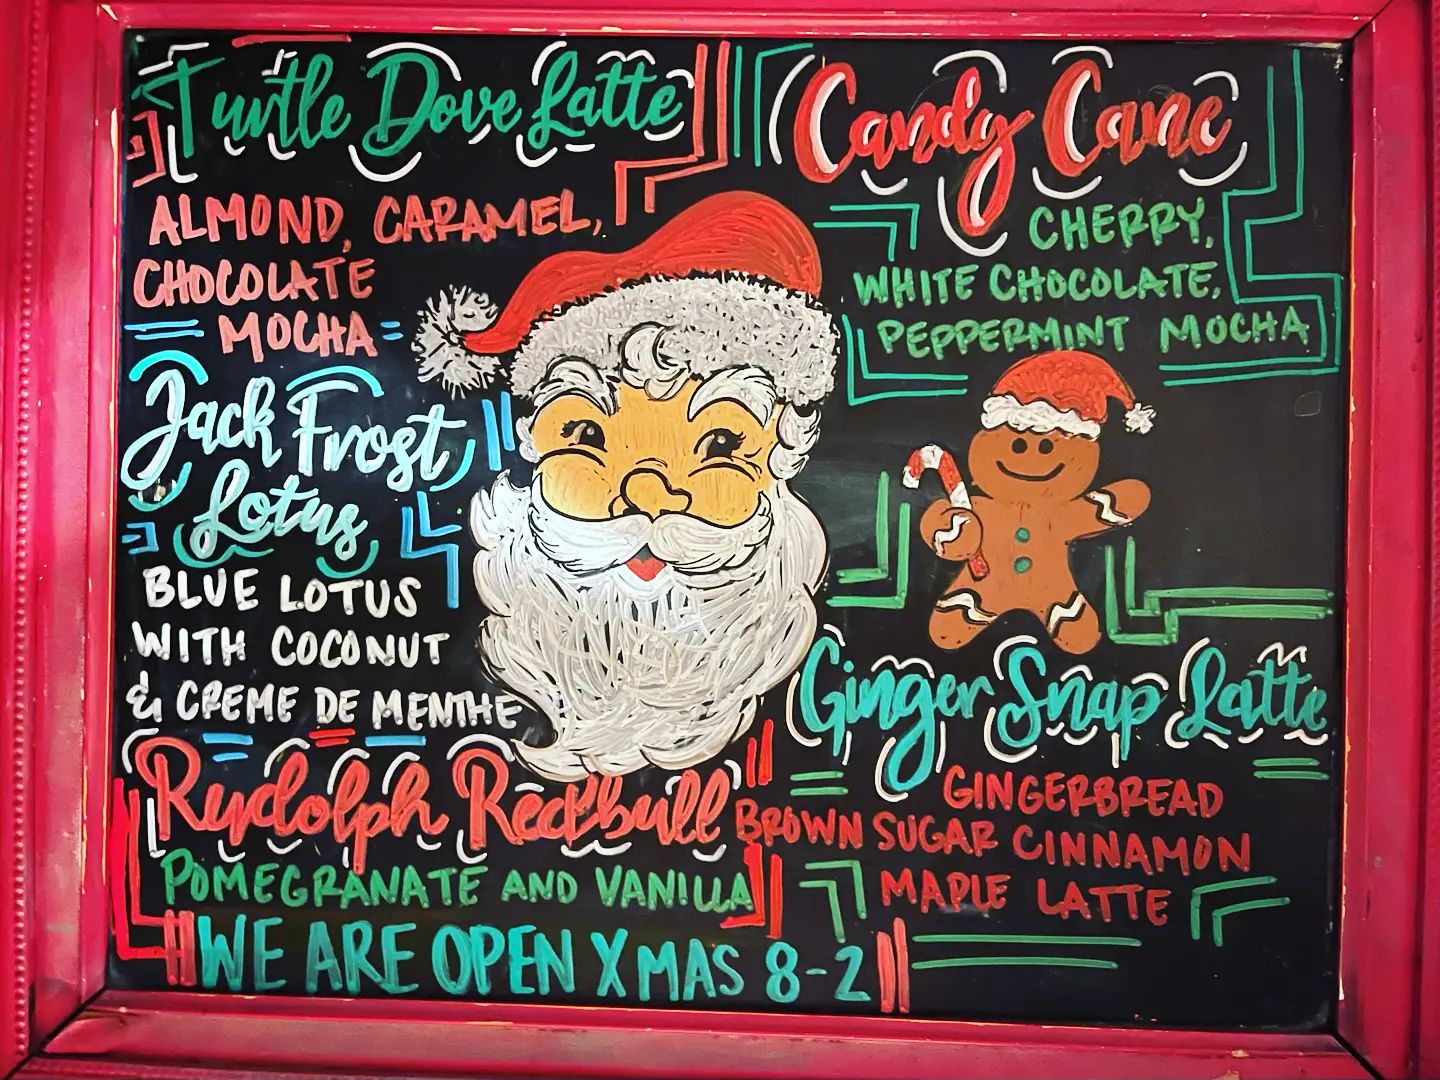 Turtle Dove Latte
ALMOND, CARAMEL,
CHOCOLATE
MOCHA
Jack Frost
Lotus
BLUE LOTUS
WITH COCONUT
& CREME DE MENTHE
Rudolph Redbull
POMEGRANATE AND VANILLA
Candy Cane
CHERRY,
WHITE CHOCOLATE,
PEPPERMINT MOCHA
Ginger Snap Latte
GINGERBREAD
BROWN SUGAR CINNAMON
MAPLE LATTE
WE ARE OPEN XMAS 8-2